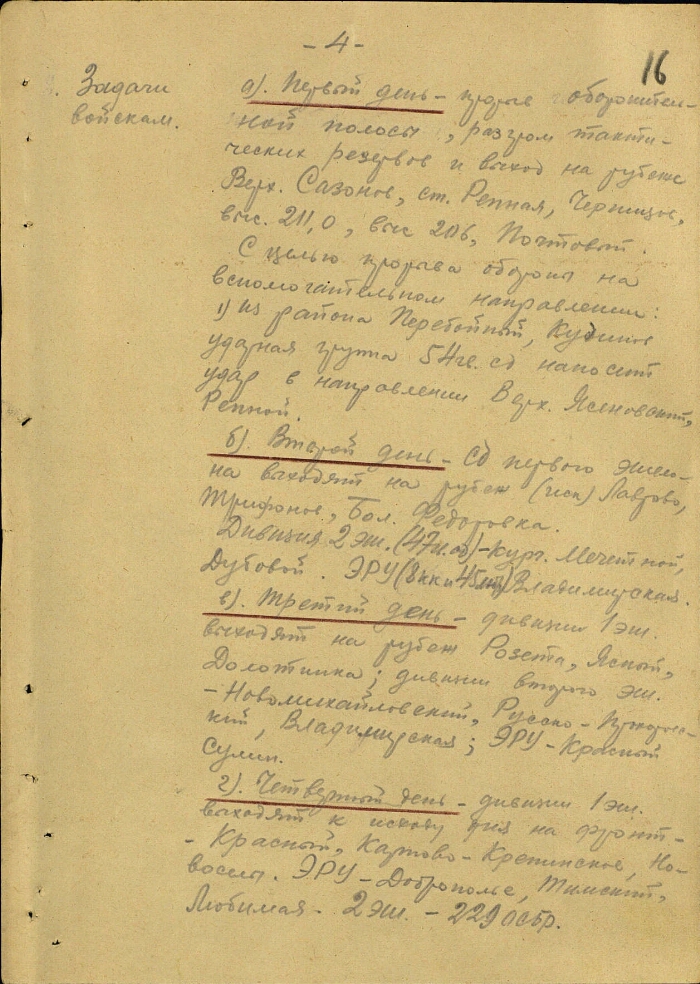 - 4 -
16
Задачи
войскам.
а). Первый день - прорыв оборонитель-
ной полосы, разгром такти-
ческих резервов и выход на рубеж
Верх. Сазонов, ст. Репная, Черницов,
выс. 211,0, выс 206, Почтовый.
С целью прорыва обороны на
вспомогательном направлении:
1) Из района Перебойный, Кудинов
ударная группа 54 гв. сд наносит
удар в направлении Верх. Ясеновский,
Репной.
б). Второй день - сд первого эшело-
на выходят на рубеж (иск) Лаврово,
Трифонов, Бол. Федоровка.
Дивизия 2 эш. - Кург. Мечетной,
Дубовой. ЭРУ Владимирская.
в). Третий день - дивизии 1 эш.
выходят на рубеж Розета, Ясный,
Долотинка; дивизии второго эш.
- Новомихайловский, Русско-
кий, Владимирская; ЭРУ - Красный
Сулин.
г). Четвертый день - дивизии 1 эш.
выходят к исходу дня на фронт -
- Красный, Каргово-Крепинское, Но-
ЭРУ - Доброполье,
Любимая - 2 эш. - 229 осбр.